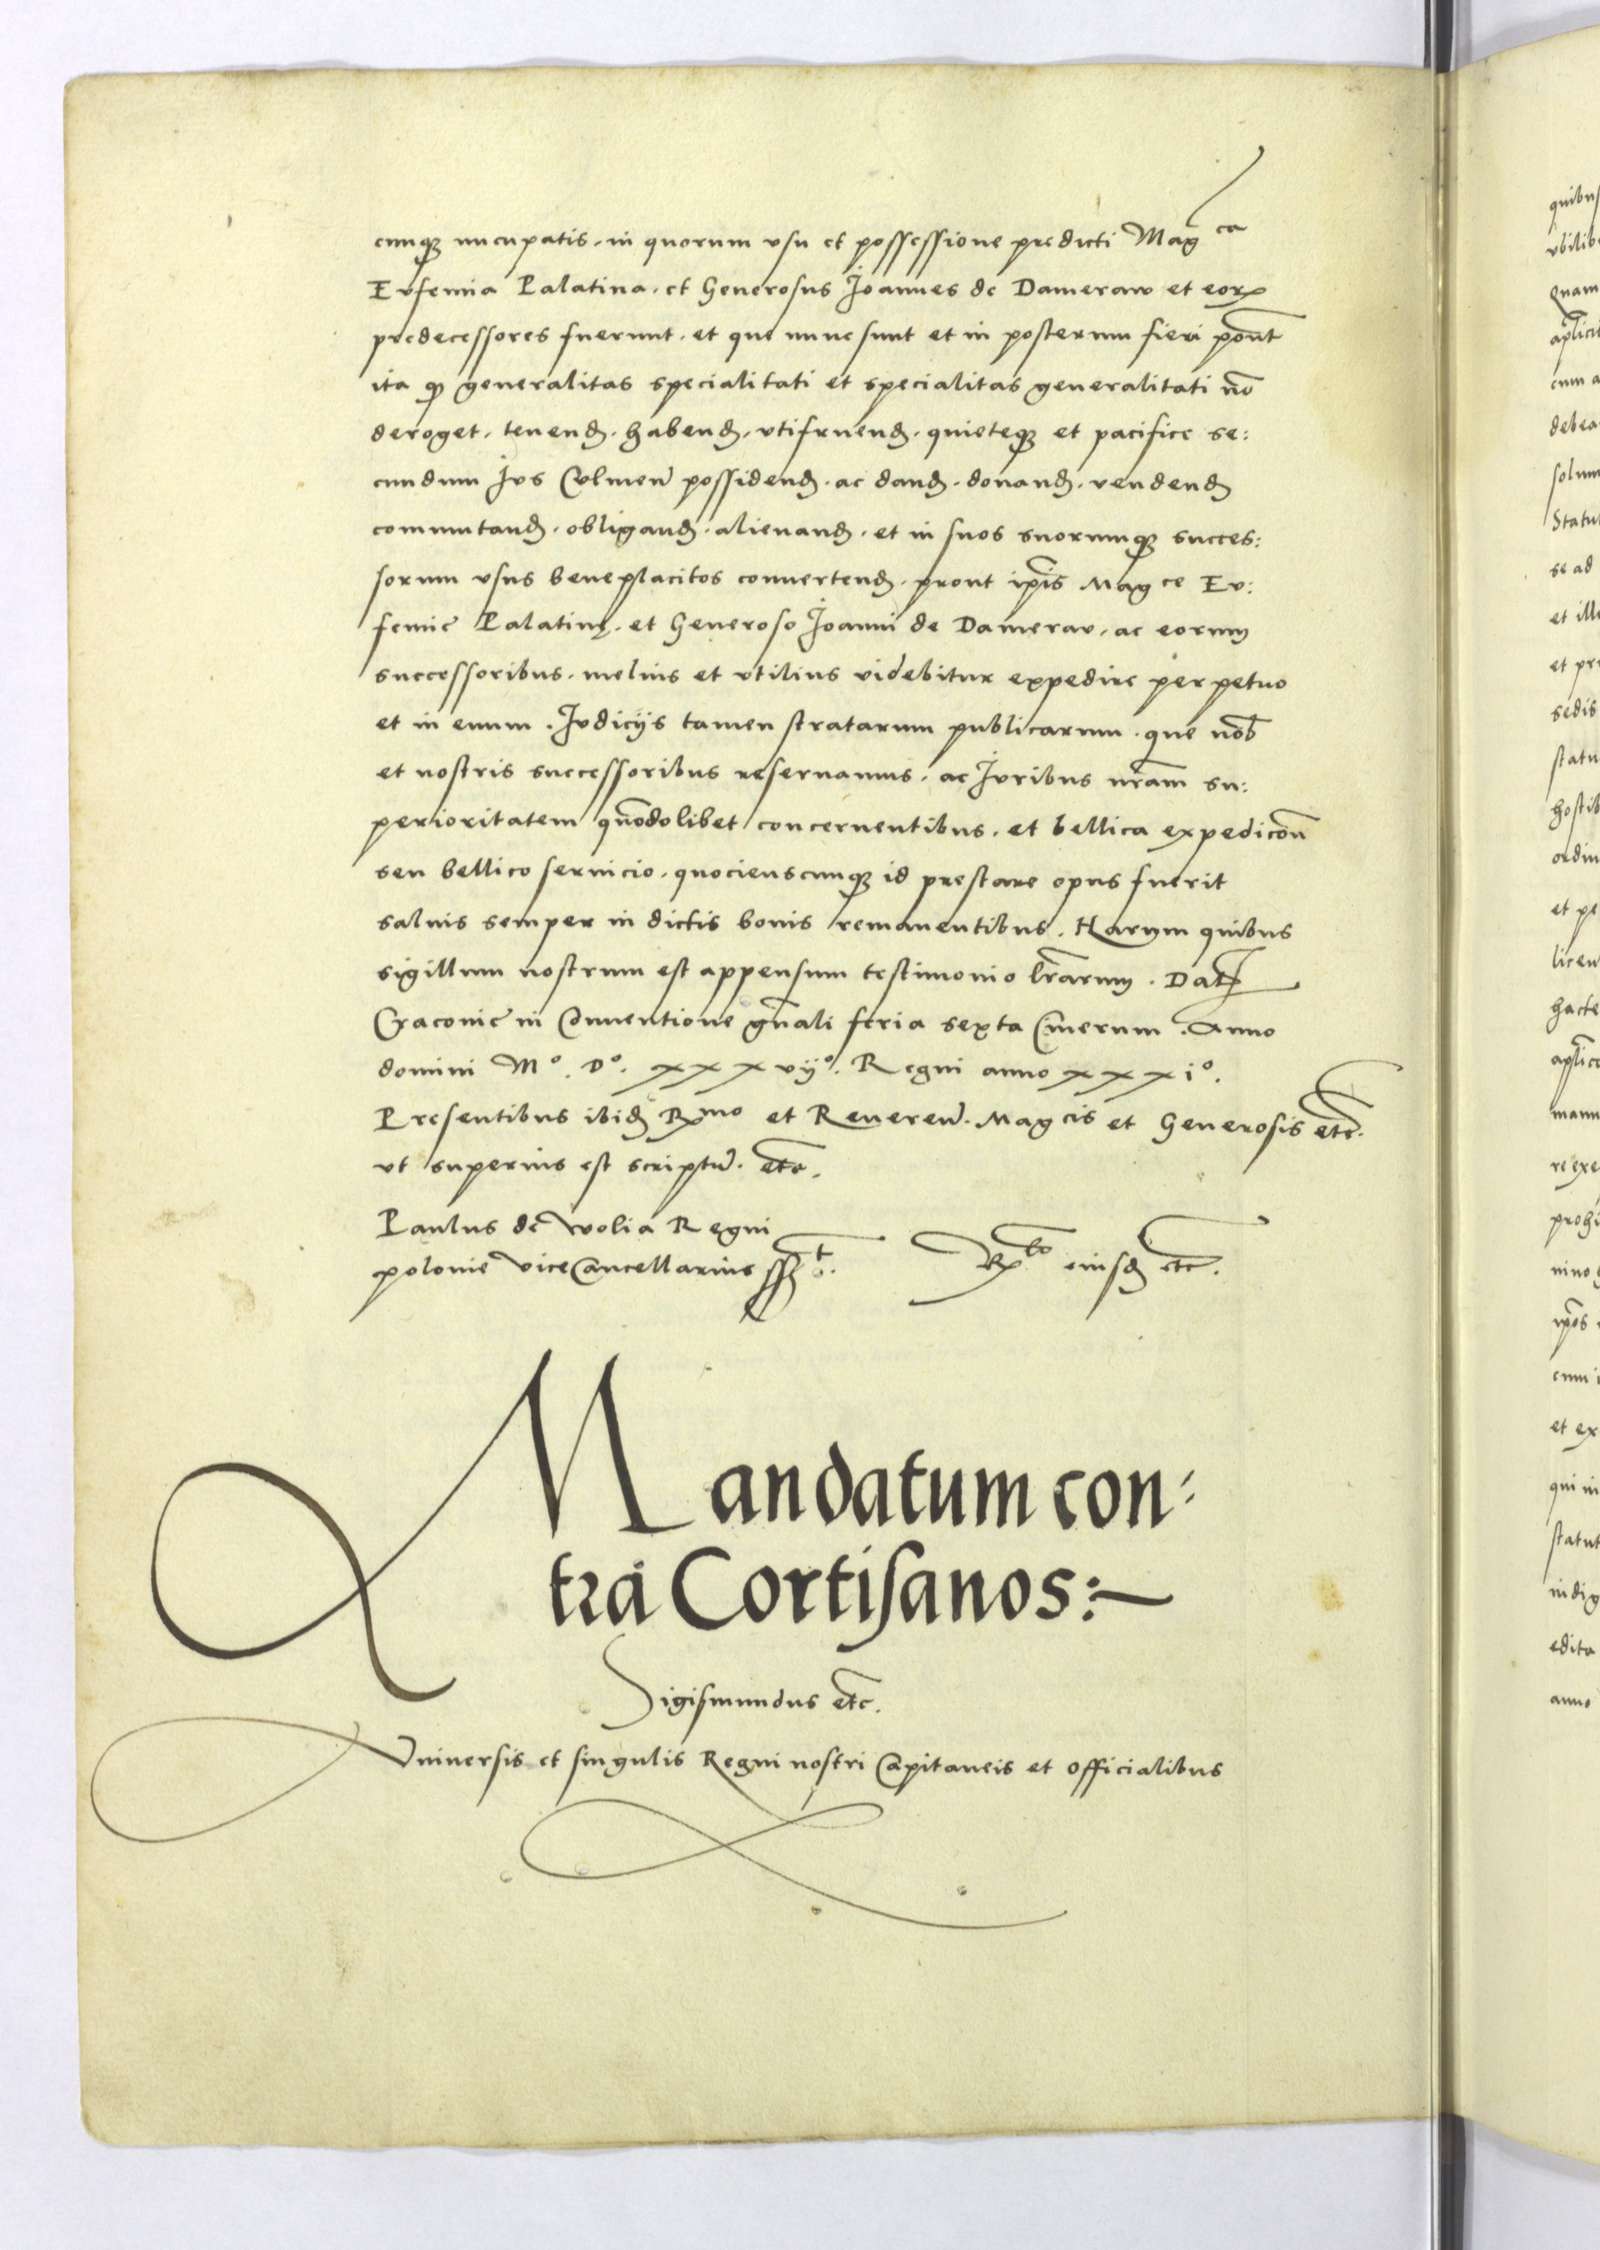 cunqꝫ nucupatis. in quorum vsu et possessione predicti Mag^ca
Eufemia Palatina. et Generosus Joannes de Dameraw et eorꝝ
predecessores fuerunt. et que nunc sunt et in posterum fieri pōnt
ita qꝫ generalitas specialitati et specialitas generalitati nō
deroget. tenenđ. habenđ. vtifruenđ. quieteqꝫ et pacifice se:
cundum Jus Culmeñ possidenđ. ac danđ. donanđ. vendenđ
commutanđ. obliganđ. alienanđ. et in suos suorumqꝫ succes:
sorum vsus beneplacitos convertenđ. prout ip̄is Mag ce Eu:
femie Palatinę. et Generoso Joanni de Damerau. ac eorum
successoribus. melius et vtilius videbitur expedire perpetuo
et in euum. Judicijs tamen stratarum publicarum. que nob̄
et nostris successoribus reseruamus. ac Juribus nr̄am su:
perioritatem quōdolibet concernentibus. et bellica expedicōn
seu bellico seruicio. quocienscunqꝫ id prestare opus fuerit
saluis semper in dictis bonis remanentibus. Harum quibus
sigillum nostrum est appensum testimonio lr̄arum. Dat̄
Cracovie in Conventione gn̄ali feria sexta Cinerum. Anno
domini M°. D°. xxxvij°. Regni anno xxxi°.
Presentibus ibiđ Rmo et Revereñ. Magcis et Generosis etc̄.
vt superius est scriptū. etc̄.
Paulus de Wolia Regni
polonie ViceCancellarius sszt.
Rto eiusđ etc̄.
Mandatum con:
tra Cortisanos:~
Sigismundus etc̄.
Vniuersis et singulis Regni nostri Capitaneis et Officialibus